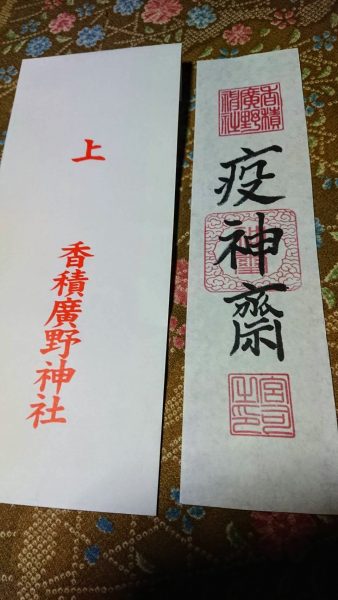 香積
廣野
神社
疫神齋
宮司
之印
上
香積廣野神社